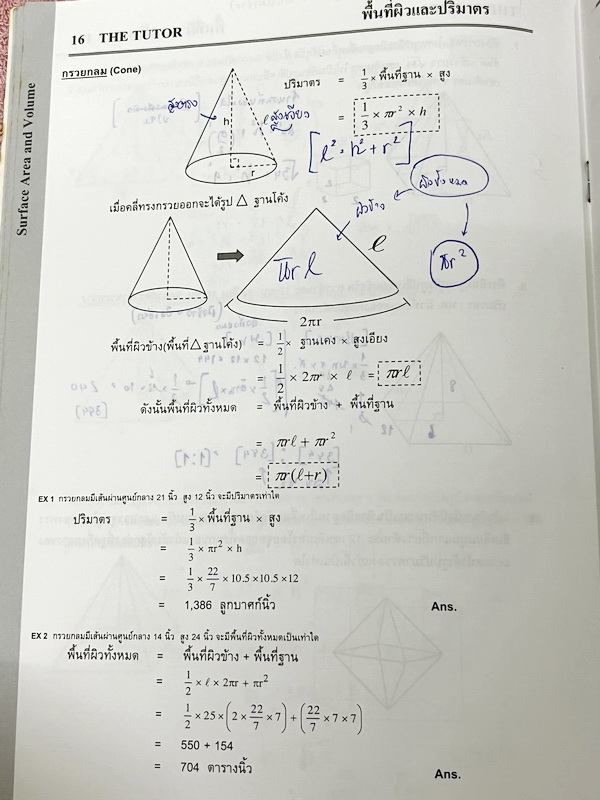 พื้นที่ผิวและปริมาตร
16 THE TUTOR
Surface Area and Volume
กรวยกลม (Cone)
ปริมาตร = 1/3 × พื้นที่ฐาน × สูง
= 1/3 × πr² × h
สูงตรง
h
ℓ
สูงเอียง
r
[ℓ² = h² + r²]
เมื่อคลี่ทรงกรวยออกจะได้รูป △ ฐานโค้ง
ผิวข้าง
ผิวทั้งหมด
πrℓ
ℓ
πr²
2πr
พื้นที่ผิวข้าง(พื้นที่△ฐานโค้ง) = 1/2 × ฐานโค้ง × สูงเอียง
= 1/2 × 2πr × ℓ = πrℓ
ดังนั้นพื้นที่ผิวทั้งหมด = พื้นที่ผิวข้าง + พื้นที่ฐาน
= πrℓ + πr²
= πr(ℓ+r)
EX 1 กรวยกลมมีเส้นผ่านศูนย์กลาง 21 นิ้ว สูง 12 นิ้ว จะมีปริมาตรเท่าใด
ปริมาตร = 1/3 × พื้นที่ฐาน × สูง
= 1/3 × πr² × h
= 1/3 × 22/7 × 10.5 × 10.5 × 12
= 1,386 ลูกบาศก์นิ้ว Ans.
EX 2 กรวยกลมมีเส้นผ่านศูนย์กลาง 14 นิ้ว สูง 24 นิ้ว จะมีพื้นที่ผิวทั้งหมดเป็นเท่าใด
พื้นที่ผิวทั้งหมด = พื้นที่ผิวข้าง + พื้นที่ฐาน
= 1/2 × ℓ × 2πr + πr²
= 1/2 × 25 × (2 × 22/7 × 7) + (22/7 × 7 × 7)
= 550 + 154
= 704 ตารางนิ้ว Ans.